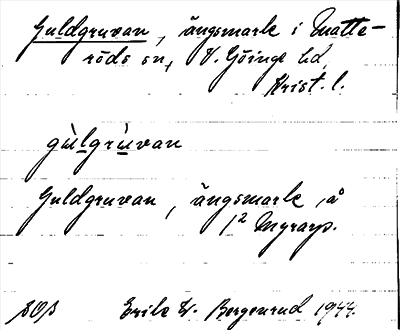 Guldgruvan, ängsmark i Matte-
röds sn, V. Göinge hd,
Krist. l.
gùlgrùvan
Guldgruvan, ängsmark på
1² Myrarp.
Erik W. Bergenrud 1944.